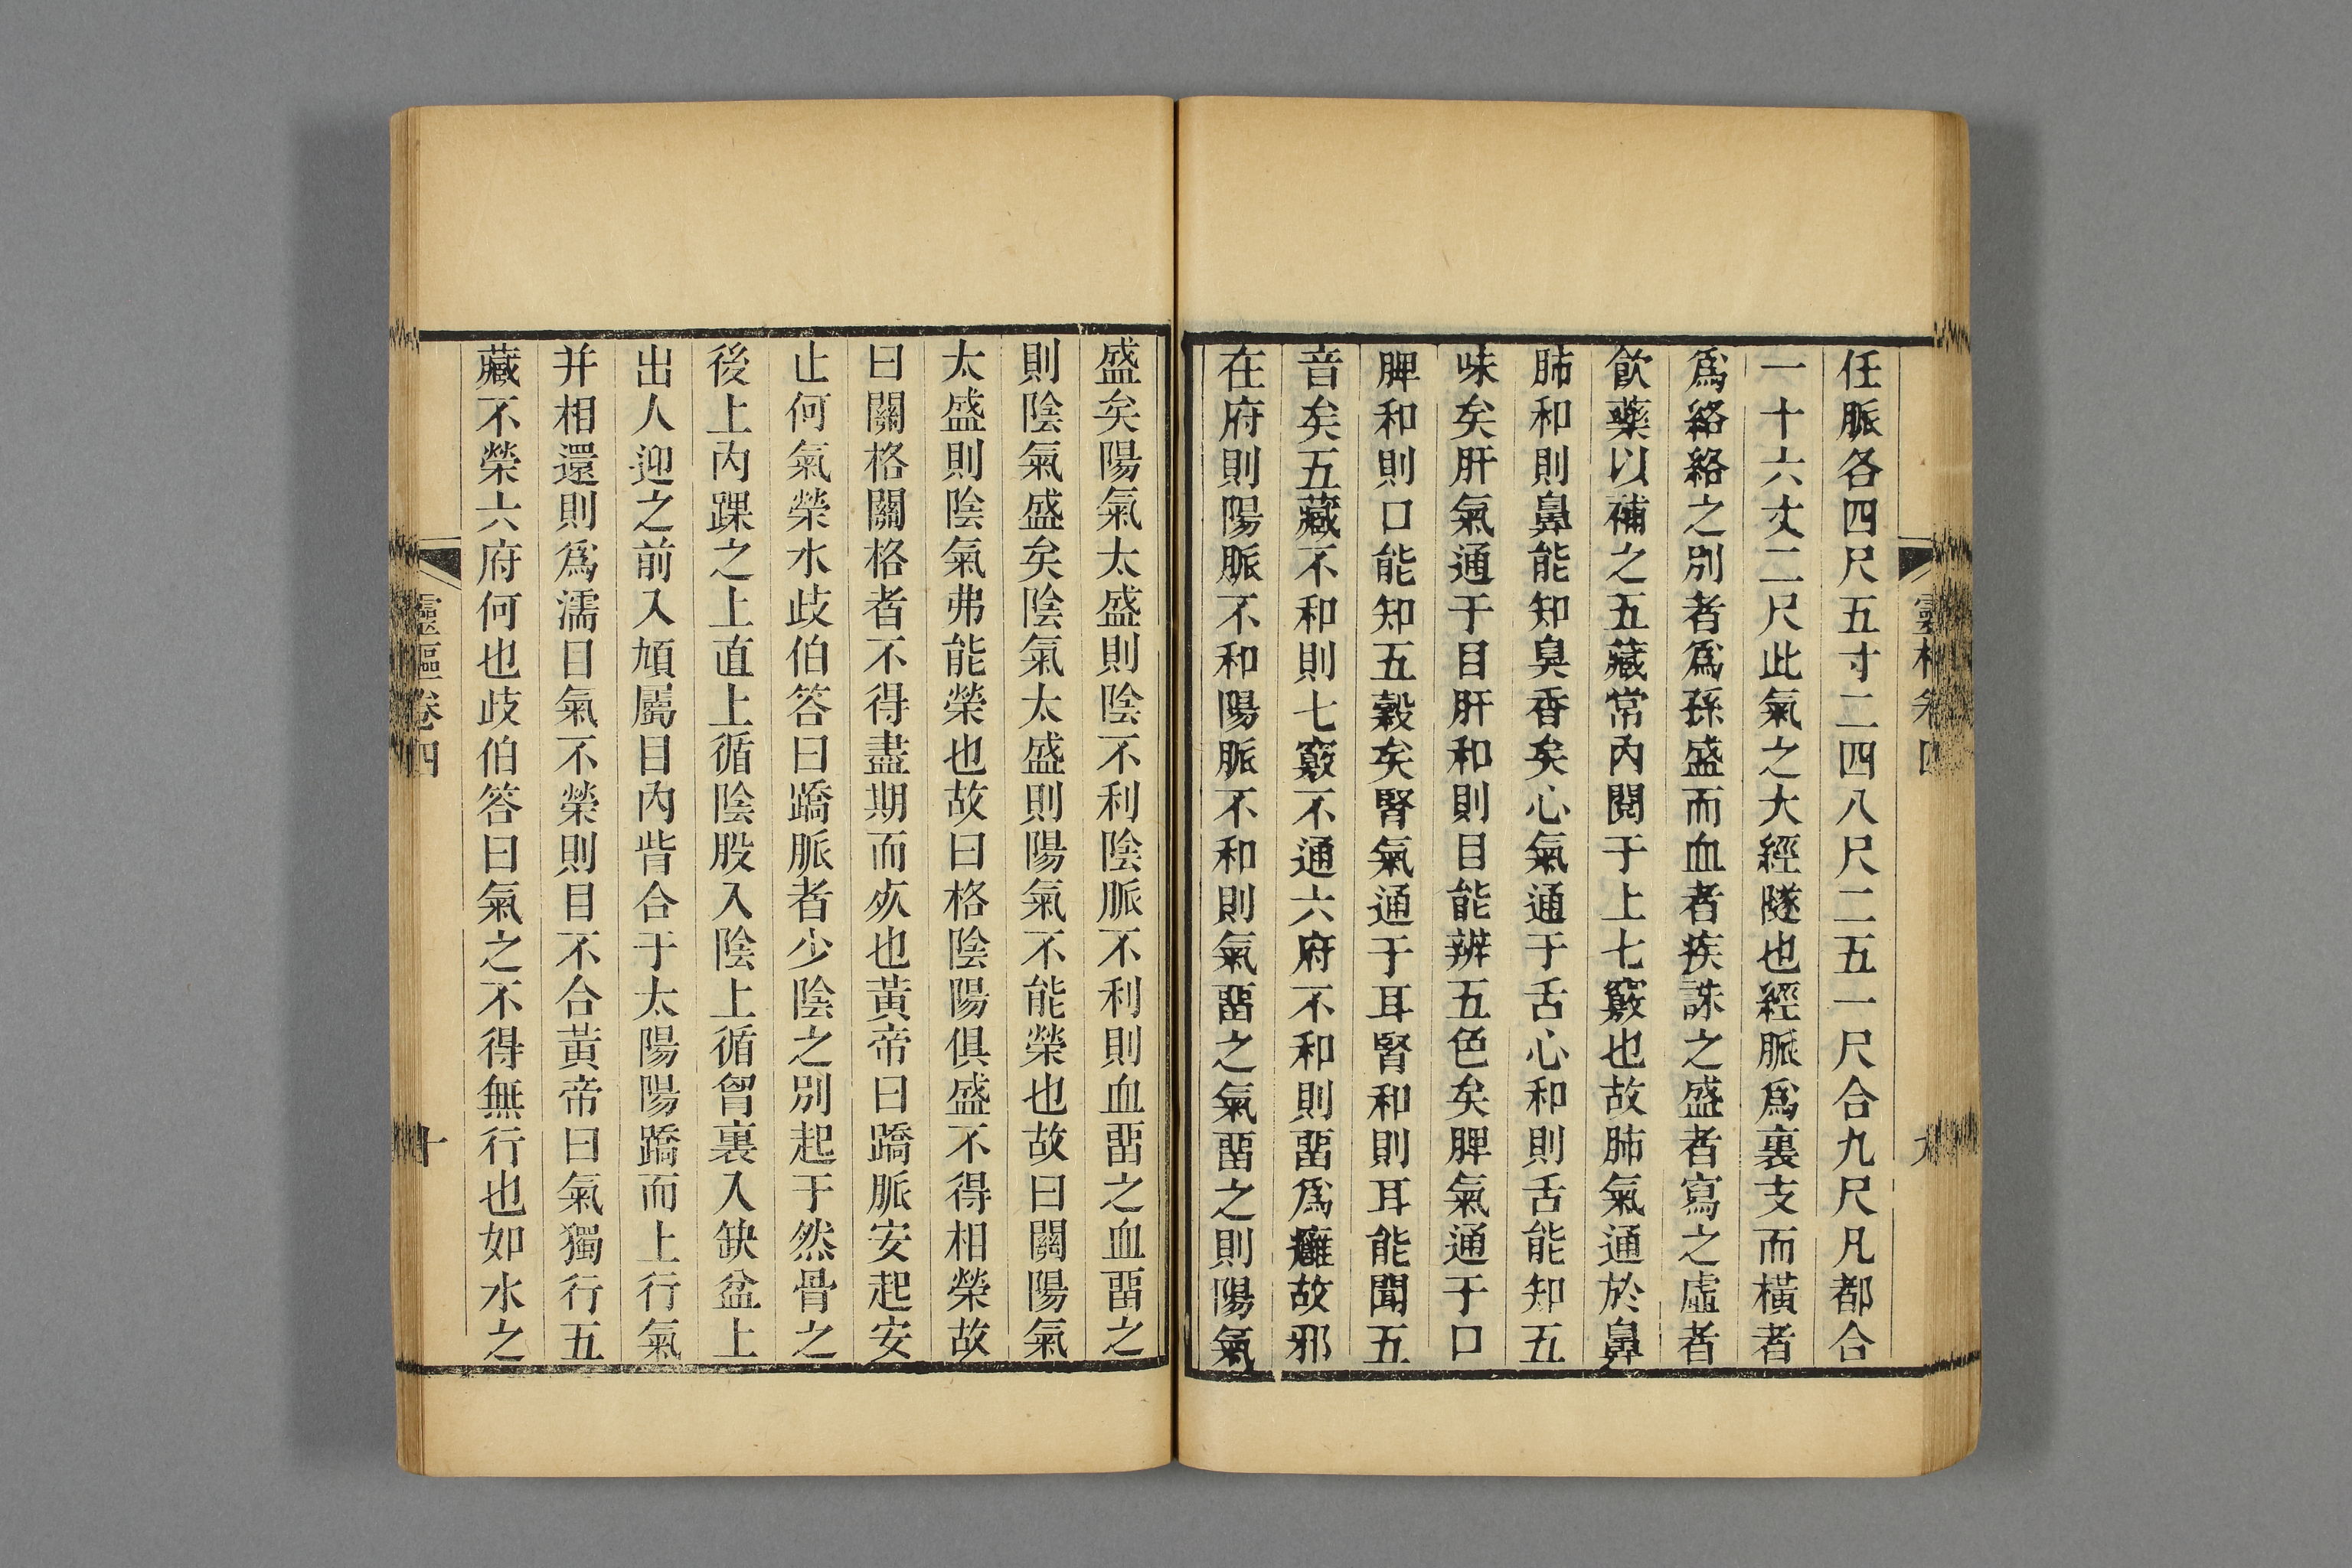 靈樞卷四
九
任脈各四尺五寸二四八尺二五一尺合九尺凡都合
一十六丈二尺此氣之大經隧也經脈爲裏支而橫者
爲絡絡之別者爲孫盛而血者疾誅之盛者寫之虛者
飮藥以補之五藏常內閱于上七竅也故肺氣通於鼻
肺和則鼻能知臭香矣心氣通于舌心和則舌能知五
味矣肝氣通于目肝和則目能辨五色矣脾氣通于口
脾和則口能知五穀矣腎氣通于耳腎和則耳能聞五
音矣五藏不和則七竅不通六府不和則畱爲癰故邪
在府則陽脈不和陽脈不和則氣畱之氣畱之則陽氣
盛矣陽氣太盛則陰不利陰脈不利則血畱之血畱之
則陰氣盛矣陰氣太盛則陽氣不能榮也故曰關陽氣
太盛則陰氣弗能榮也故曰格陰陽俱盛不得相榮故
曰關格關格者不得盡期而死也黃帝曰蹻脈安起安
止何氣榮水歧伯答曰蹻脈者少陰之別起于然骨之
後上內踝之上直上循陰股入陰上循胷裏入缺盆上
出人迎之前入頄屬目內眥合于太陽陽蹻而上行氣
并相還則爲濡目氣不榮則目不合黃帝曰氣獨行五
藏不榮六府何也歧伯答曰氣之不得無行也如水之
靈樞卷四
十